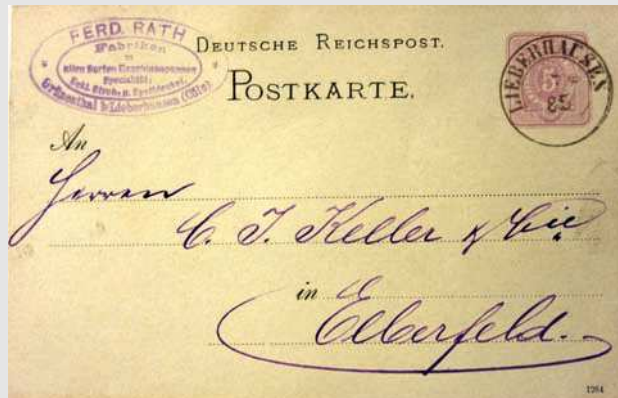 FERD. RATH
Fabriken
in
allen Sorten
Grünenthal b/Lieberhausen
DEUTSCHE REICHSPOST.
POSTKARTE.
LIEBERHAUSEN
85
5
An
Herren
C. J. Keller & Cie
in
Elberfeld.
1284